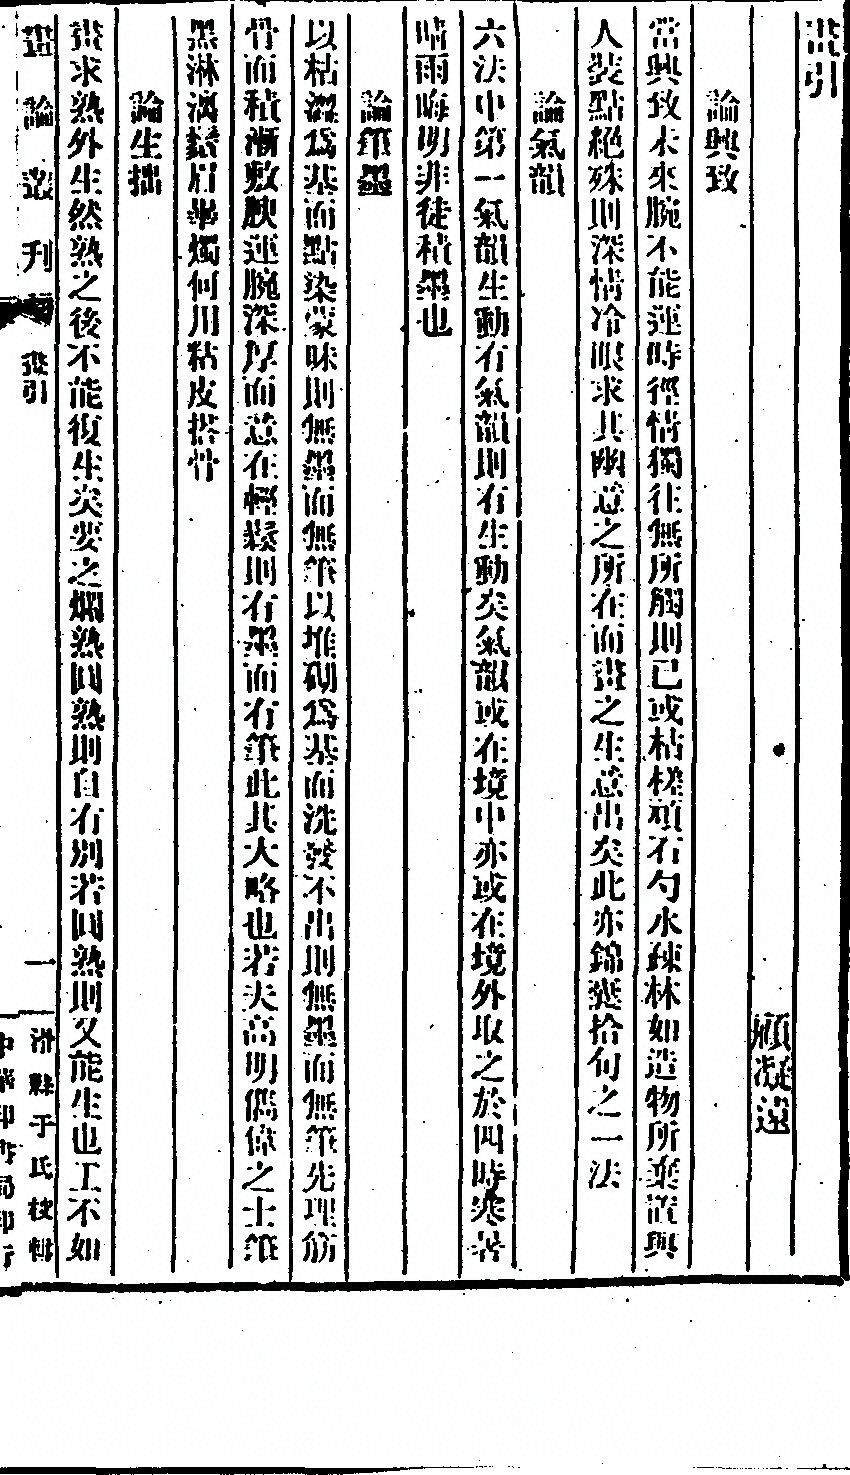 畫引
顧凝遠
論興致
當興致未來腕不能運時徑情獨往無所觸則已或枯槎頑石勺水疎林如造物所棄置與
人裝點絕殊則深情冷眼求其幽意之所在而畫之生意出矣此亦錦囊拾句之一法
論氣韻
六法中第一氣韻生動有氣韻則有生動矣氣韻或在境中亦或在境外取之於四時寒暑
晴雨晦明非徒積墨也
論筆墨
以枯澀爲基而點染蒙昧則無墨而無筆以堆砌爲基而洗發不出則無墨而無筆先理筋
骨而積漸敷腴運腕深厚而意在輕鬆則有墨而有筆此其大略也若夫高明儁偉之士筆
墨淋漓鬚眉畢燭何用粘皮搭骨
論生拙
畫求熟外生然熟之後不能復生矣要之爛熟圓熟則自有別若圓熟則又能生也工不如
畫論叢刊 畫引 一 滑縣于氏校輯
中華印書局印行